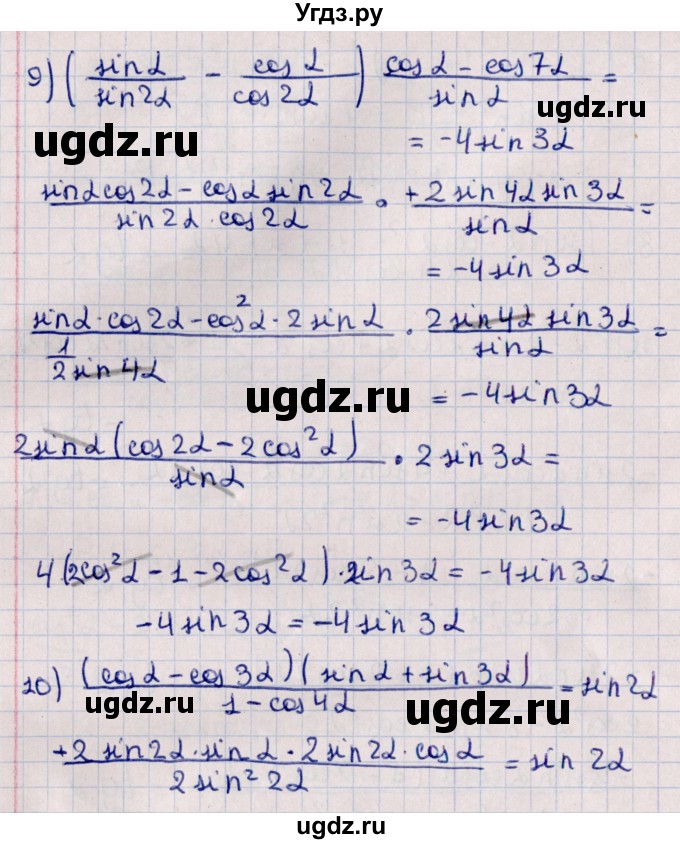 Угдз.ру
9) ( sin α / sin 2α − cos α / cos 2α ) cos α − cos 7α / sin α =
ugdz.ru
ugdz.ru
= −4 sin 3α
sin α cos 2α − cos α sin 2α / sin 2α · cos 2α · +2 sin 4α sin 3α / sin α =
= −4 sin 3α
sin α · cos 2α − cos² α · 2 sin α / 1/2 sin 4α · 2 sin 4α sin 3α / sin α =
ugdz.ru
= −4 sin 3α
2 sin α (cos 2α − 2 cos² α) / sin α · 2 sin 3α =
ugdz.ru
= −4 sin 3α
4 (2cos² α − 1 − 2cos² α) · sin 3α = −4 sin 3α
−4 sin 3α = −4 sin 3α
10) (cos α − cos 3α)(sin α + sin 3α) / 1 − cos 4α = sin 2α
ugdz.ru
ugdz.ru
+2 sin 2α · sin α · 2 sin 2α · cos α / 2 sin² 2α = sin 2α
ugdz.ru